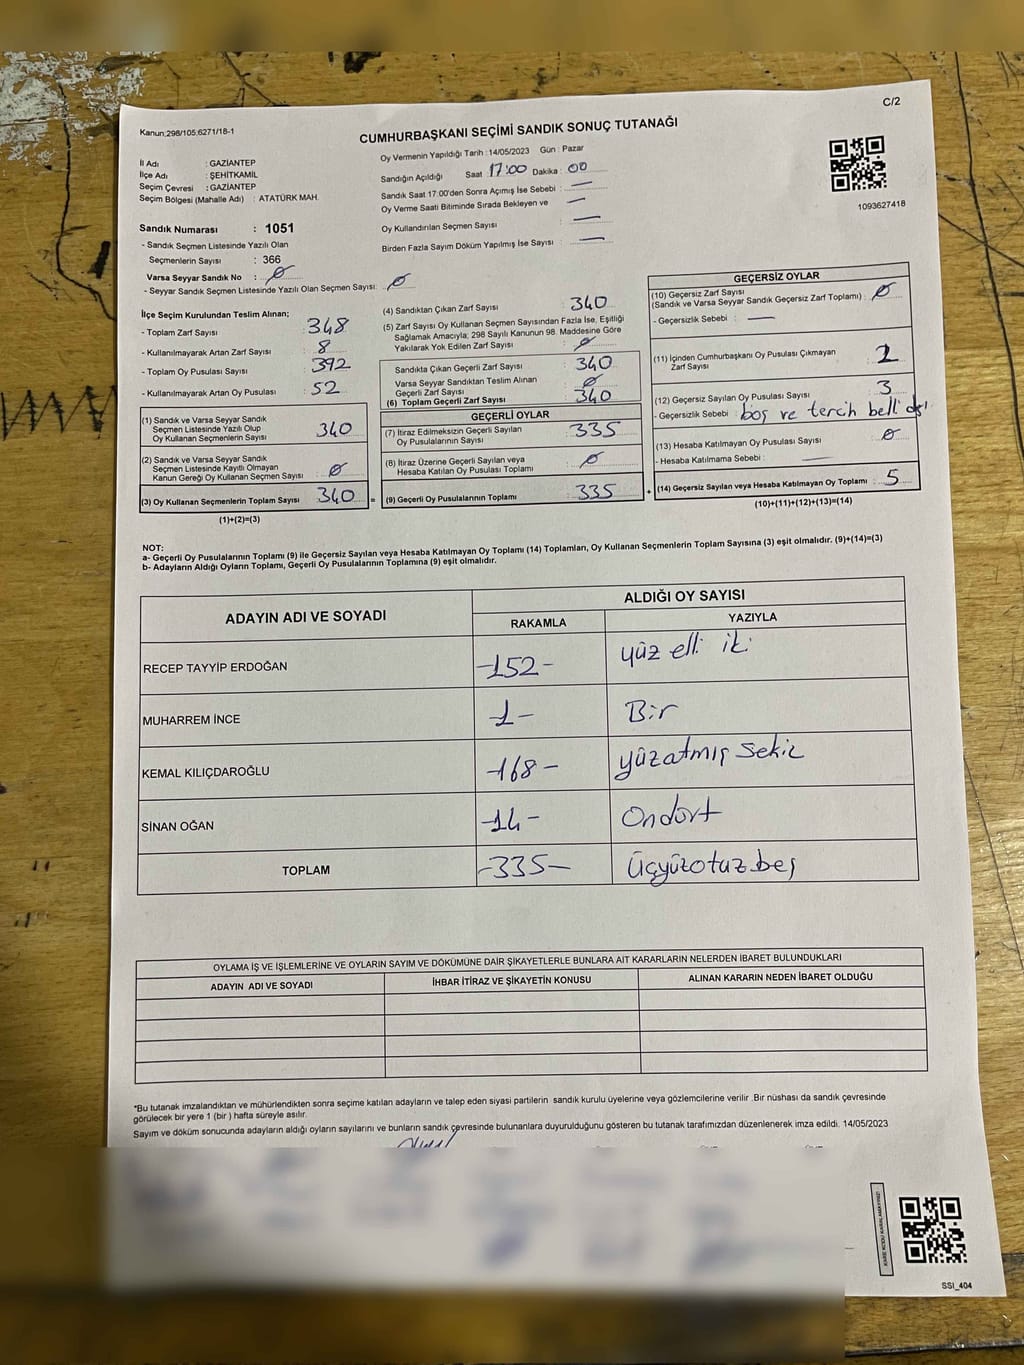 C/2
Kanun;298/105;6271/18-1
CUMHURBAŞKANI SEÇİMİ SANDIK SONUÇ TUTANAĞI
İl Adı : GAZİANTEP
İlçe Adı : ŞEHİTKAMİL
Seçim Çevresi : GAZİANTEP
Seçim Bölgesi (Mahalle Adı) : ATATÜRK MAH.
Oy Vermenin Yapıldığı Tarih : 14/05/2023 Gün : Pazar
Sandığın Açıldığı Saat : 17:00 Dakika : 00
Sandık Saat 17:00'den Sonra Açımış İse Sebebi : —
Oy Verme Saati Bitiminde Sırada Bekleyen ve —
Oy Kullandırılan Seçmen Sayısı —
Birden Fazla Sayım Döküm Yapılmış İse Sayısı : —
1093627418
Sandık Numarası : 1051
- Sandık Seçmen Listesinde Yazılı Olan
Seçmenlerin Sayısı : 366
Varsa Seyyar Sandık No : Ø
- Seyyar Sandık Seçmen Listesinde Yazılı Olan Seçmen Sayısı: Ø
İlçe Seçim Kurulundan Teslim Alınan;
- Toplam Zarf Sayısı : 348
- Kullanılmayarak Artan Zarf Sayısı : 8
- Toplam Oy Pusulası Sayısı : 392
- Kullanılmayarak Artan Oy Pusulası : 52
(1) Sandık ve Varsa Seyyar Sandık
Seçmen Listesinde Yazılı Olup
Oy Kullanan Seçmenlerin Sayısı : 340
(2) Sandık ve Varsa Seyyar Sandık
Seçmen Listesinde Kayıtlı Olmayan
Kanun Gereği Oy Kullanan Seçmen Sayısı : Ø
(3) Oy Kullanan Seçmenlerin Toplam Sayısı : 340 =
(1)+(2)=(3)
(4) Sandıktan Çıkan Zarf Sayısı : 340
(5) Zarf Sayısı Oy Kullanan Seçmen Sayısından Fazla İse, Eşitliği
Sağlamak Amacıyla; 298 Sayılı Kanunun 98. Maddesine Göre
Yakılarak Yok Edilen Zarf Sayısı : Ø
Sandıkta Çıkan Geçerli Zarf Sayısı : 340
Varsa Seyyar Sandıktan Teslim Alınan
Geçerli Zarf Sayısı : Ø
(6) Toplam Geçerli Zarf Sayısı : 340
GEÇERLİ OYLAR
(7) İtiraz Edilmeksizin Geçerli Sayılan
Oy Pusulalarının Sayısı : 335
(8) İtiraz Üzerine Geçerli Sayılan veya
Hesaba Katılan Oy Pusulası Toplamı : Ø
(9) Geçerli Oy Pusulalarının Toplamı : 335 +
GEÇERSİZ OYLAR
(10) Geçersiz Zarf Sayısı
(Sandık ve Varsa Seyyar Sandık Geçersiz Zarf Toplamı) : Ø
- Geçersizlik Sebebi : —
(11) İçinden Cumhurbaşkanı Oy Pusulası Çıkmayan
Zarf Sayısı : 2
(12) Geçersiz Sayılan Oy Pusulası Sayısı : 3
- Geçersizlik Sebebi : boş ve tercih belli
(13) Hesaba Katılmayan Oy Pusulası Sayısı : Ø
- Hesaba Katılmama Sebebi : —
(14) Geçersiz Sayılan veya Hesaba Katılmayan Oy Toplamı : 5
(10)+(11)+(12)+(13)=(14)
NOT:
a- Geçerli Oy Pusulalarının Toplamı (9) ile Geçersiz Sayılan veya Hesaba Katılmayan Oy Toplamı (14) Toplamları, Oy Kullanan Seçmenlerin Toplam Sayısına (3) eşit olmalıdır. (9)+(14)=(3)
b- Adayların Aldığı Oyların Toplamı, Geçerli Oy Pusulalarının Toplamına (9) eşit olmalıdır.
ADAYIN ADI VE SOYADI ALDIĞI OY SAYISI
RAKAMLA YAZIYLA
RECEP TAYYİP ERDOĞAN -152- yüz elli iki
MUHARREM İNCE -1- Bir
KEMAL KILIÇDAROĞLU -168- yüzatmış sekiz
SİNAN OĞAN -14- Ondört
TOPLAM -335- Üçyüzotuzbeş
OYLAMA İŞ VE İŞLEMLERİNE VE OYLARIN SAYIM VE DÖKÜMÜNE DAİR ŞİKAYETLERLE BUNLARA AİT KARARLARIN NELERDEN İBARET BULUNDUKLARI
ADAYIN ADI VE SOYADI İHBAR İTİRAZ VE ŞİKAYETİN KONUSU ALINAN KARARIN NEDEN İBARET OLDUĞU
*Bu tutanak imzalandıktan ve mühürlendikten sonra seçime katılan adayların ve talep eden siyasi partilerin sandık kurulu üyelerine veya gözlemcilerine verilir .Bir nüshası da sandık çevresinde
görülecek bir yere 1 (bir ) hafta süreyle asılır.
Sayım ve döküm sonucunda adayların aldığı oyların sayılarını ve bunların sandık çevresinde bulunanlara duyurulduğunu gösteren bu tutanak tarafımızdan düzenlenerek imza edildi. 14/05/2023
SSI_404